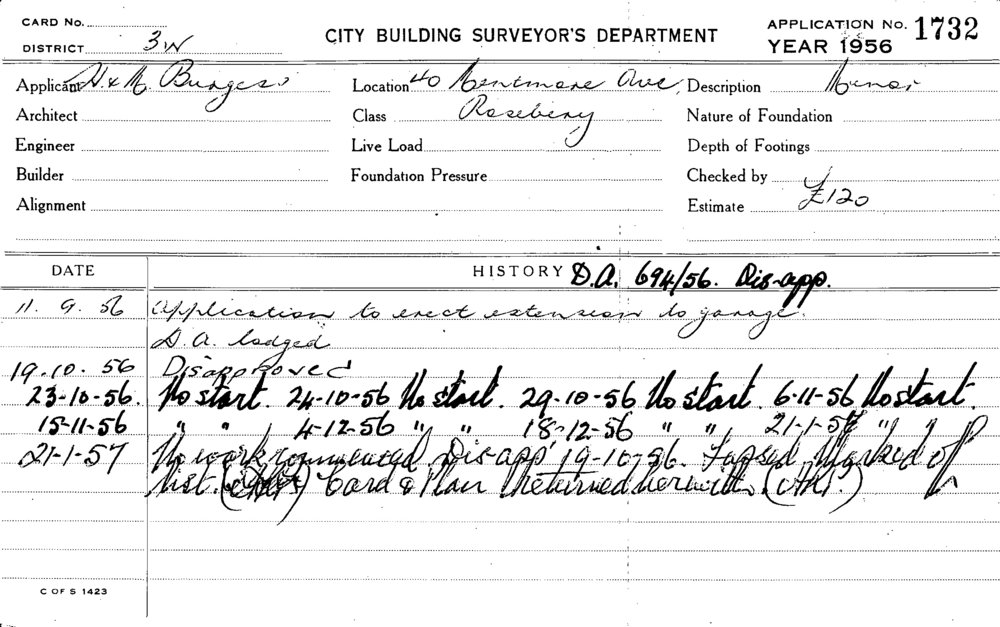 CARD No.
DISTRICT 3W
CITY BUILDING SURVEYOR'S DEPARTMENT
APPLICATION No. 1732
YEAR 1956
Applicant H & M. Burgess Location 40 Mentmore Ave, Description Minor
Architect Class Rosebery Nature of Foundation
Engineer Live Load Depth of Footings
Builder Foundation Pressure Checked by
Alignment Estimate £120
DATE HISTORY D.A. 694/56. Dis-app.
11. 9. 56 Application to erect extension to garage.
D.A. lodged
19.10. 56 Disapproved
23-10-56. No start. 24-10-56 No start. 29-10-56 No start. 6-11-56 No start.
15-11-56 " " 4-12-56 " " 18-12-56 " " 21-1-57 " "
21-1-57 No work commenced. Dis-app 19-10-56. Lapsed. Marked off
list. Card & Plan returned herewith.
C OF S 1423